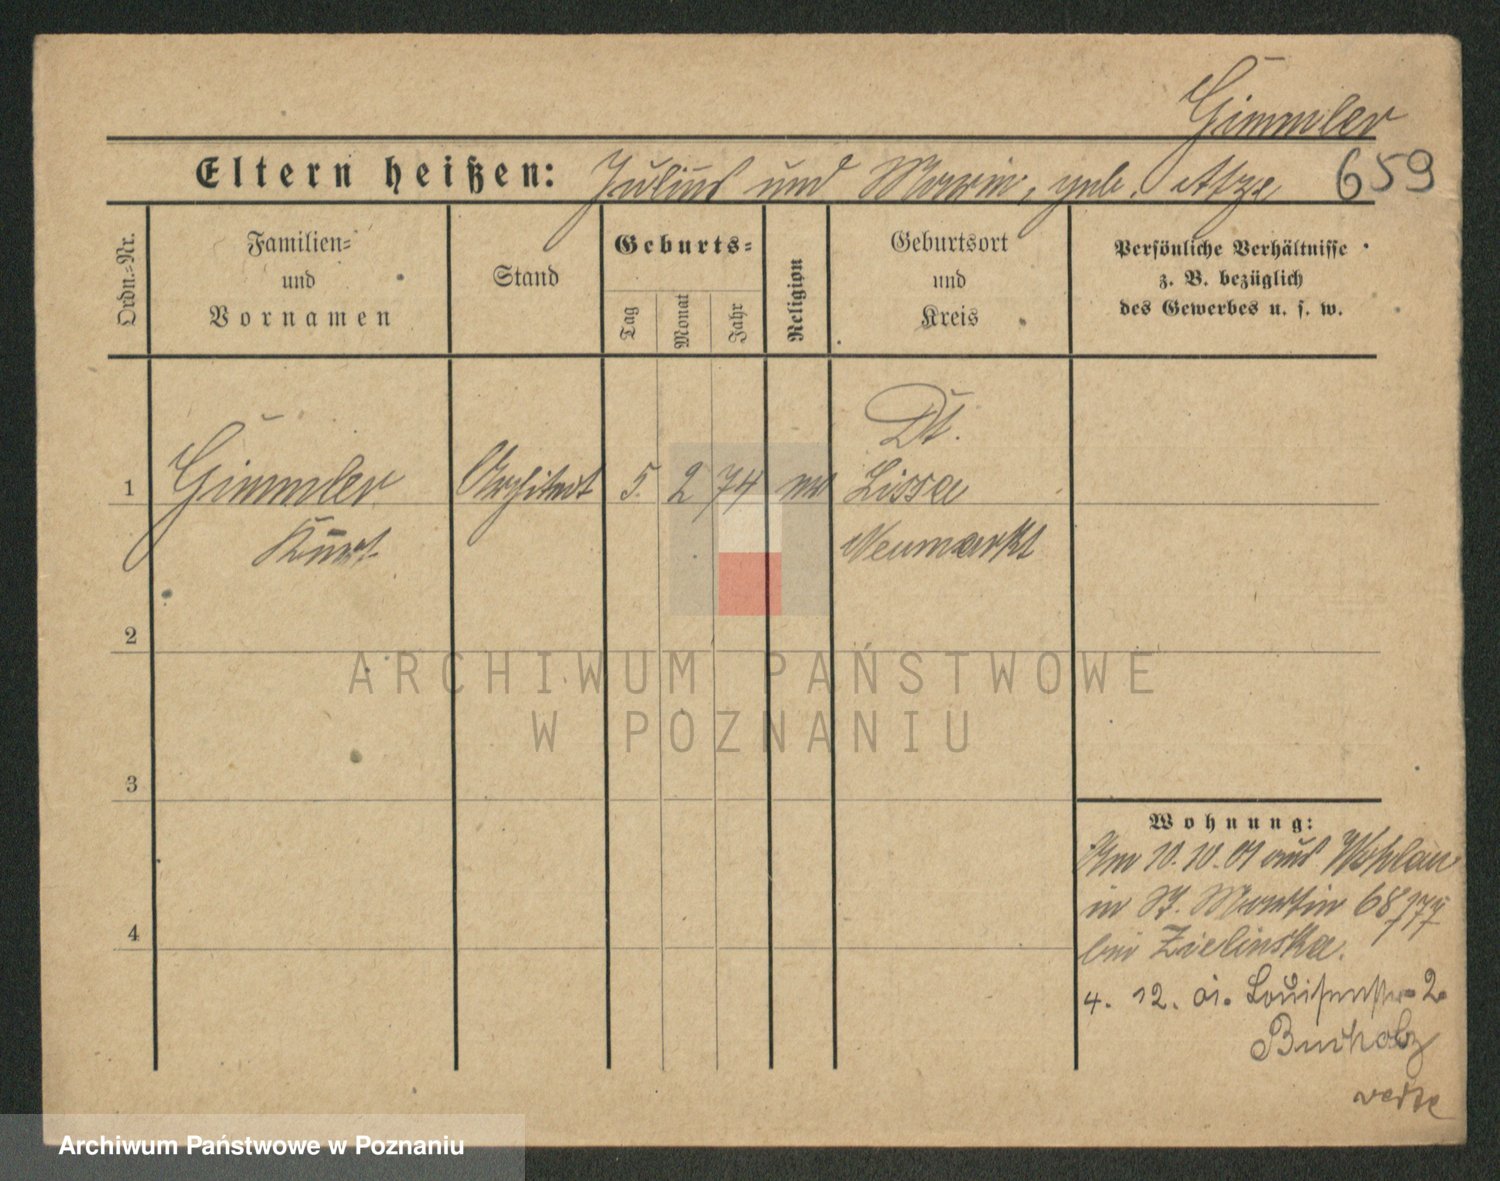 Gimmler
Eltern heißen: Julius und Marie, geb. Atze 659
Ordn.-Nr.
Familien-
und
Vornamen
Stand
Geburts-
Tag
Monat
Jahr
Religion
Geburtsort
und
Kreis
Persönliche Verhältnisse
z. B. bezüglich
des Gewerbes u. s. w.
1 Gimmler Architekt 5. 2 74 ev Dt.
Lissa
Kurt Neumarkt
2
3
4
Wohnung:
Am 10.10.01 aus Wohlau
in St. Martin 68
bei Zielinska.
4. 12. 01. Louisenstr. 2
Buchholz
ARCHIWUM PAŃSTWOWE
W POZNANIU
Archiwum Państwowe w Poznaniu